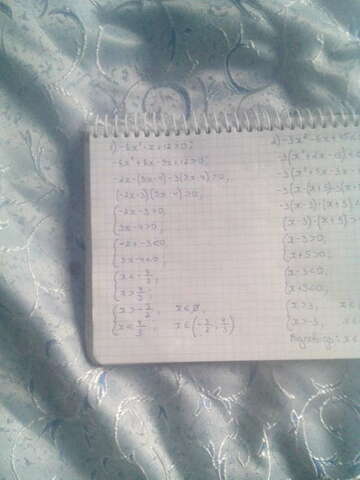 1) -6x²-x+12>0;
-6x²+8x-9x+12>0;
-2x·(3x-4)-3(3x-4)>0;
(-2x-3)(3x-4)>0;
-2x-3>0,
3x-4>0,
-2x-3<0,
3x-4<0,
x<-3/2,
x>4/3,
x>-3/2, x∈∅,
x<4/3, x∈(-3/2; 4/3)
2) -3x²-6x+
-3(x²+2x-
-3(x²+5x-3x-
-3(x·(x+5)-3(x+
-3(x-3)·(x+5)<
(x-3)·(x+5)>
x-3>0,
x+5>0;
x-3<0,
x+5<0;
x>3,
x>-5,